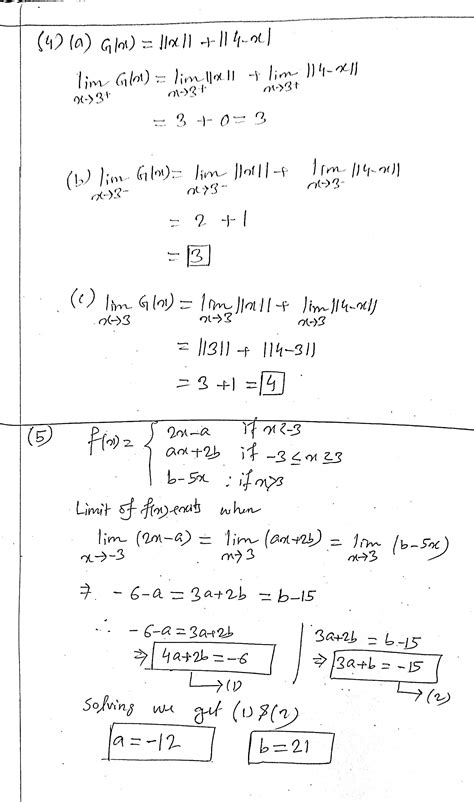 (4) (a) G(x) = ||x|| + ||4-x|
lim x→3+ G(x) = lim x→3+ ||x|| + lim x→3+ ||4-x||
= 3 + 0 = 3
(b) lim x→3- G(x) = lim x→3- ||x|| + lim x→3- ||4-x||
= 2 + 1
= 3
(c) lim x→3 G(x) = lim x→3 ||x|| + lim x→3 ||4-x||
= ||3|| + ||4-3||
= 3 + 1 = 4
(5) f(x) = { 2x-a if x<-3
ax+2b if -3≤x≤3
b-5x : if x>3
Limit of f(x) exits when
lim x→-3 (2x-a) = lim x→3 (ax+2b) = lim x→3 (b-5x)
⇒ -6-a = 3a+2b = b-15
∴ -6-a = 3a+2b | 3a+2b = b-15
⇒ 4a+2b = -6 | ⇒ 3a+b = -15
→(1) →(2)
Solving we get (1) & (2)
a = -12 b = 21